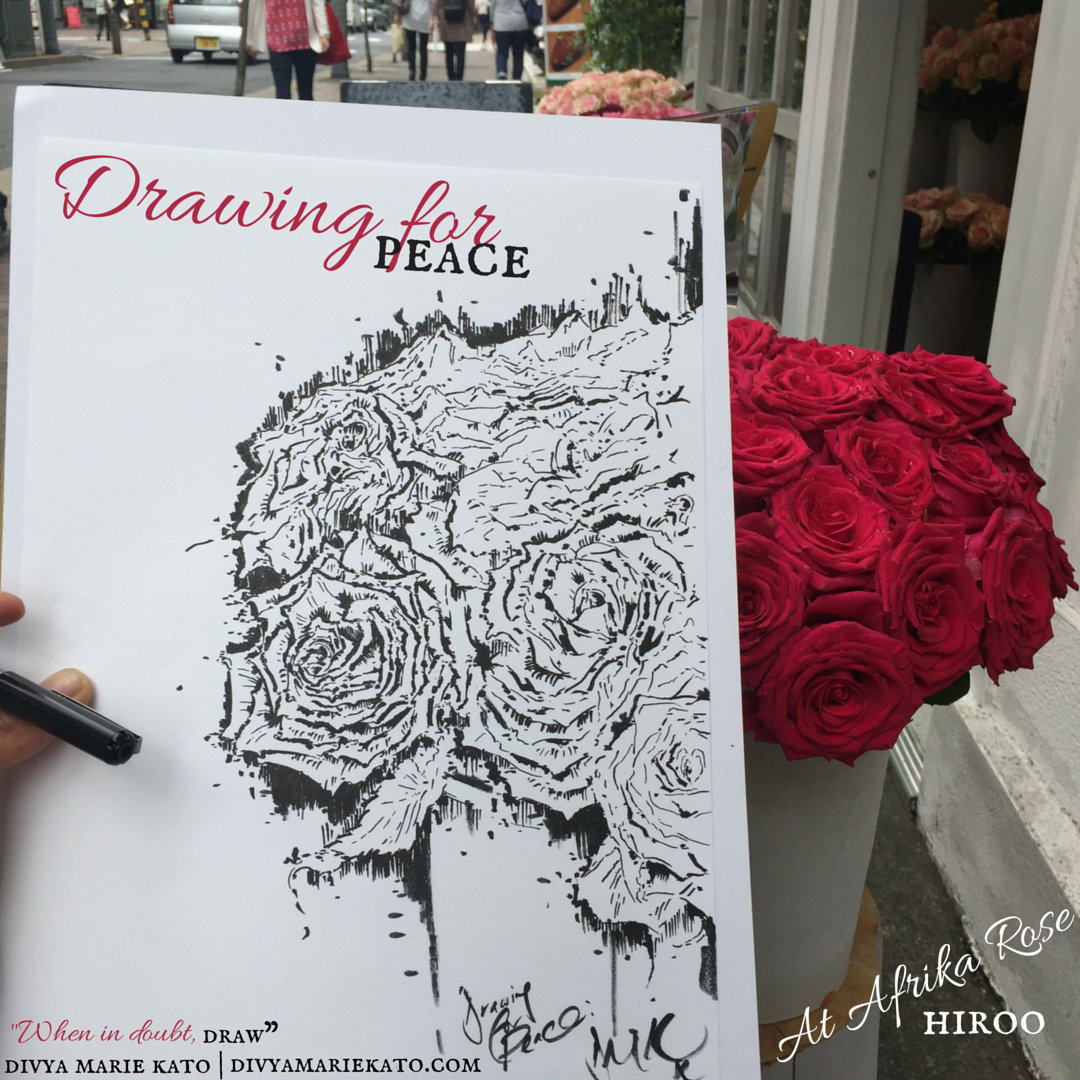 Drawing for
PEACE
Drawing
for
Peace.
At Afrika Rose
HIROO
"When in doubt, DRAW"
DIVYA MARIE KATO | DIVYAMARIEKATO.COM